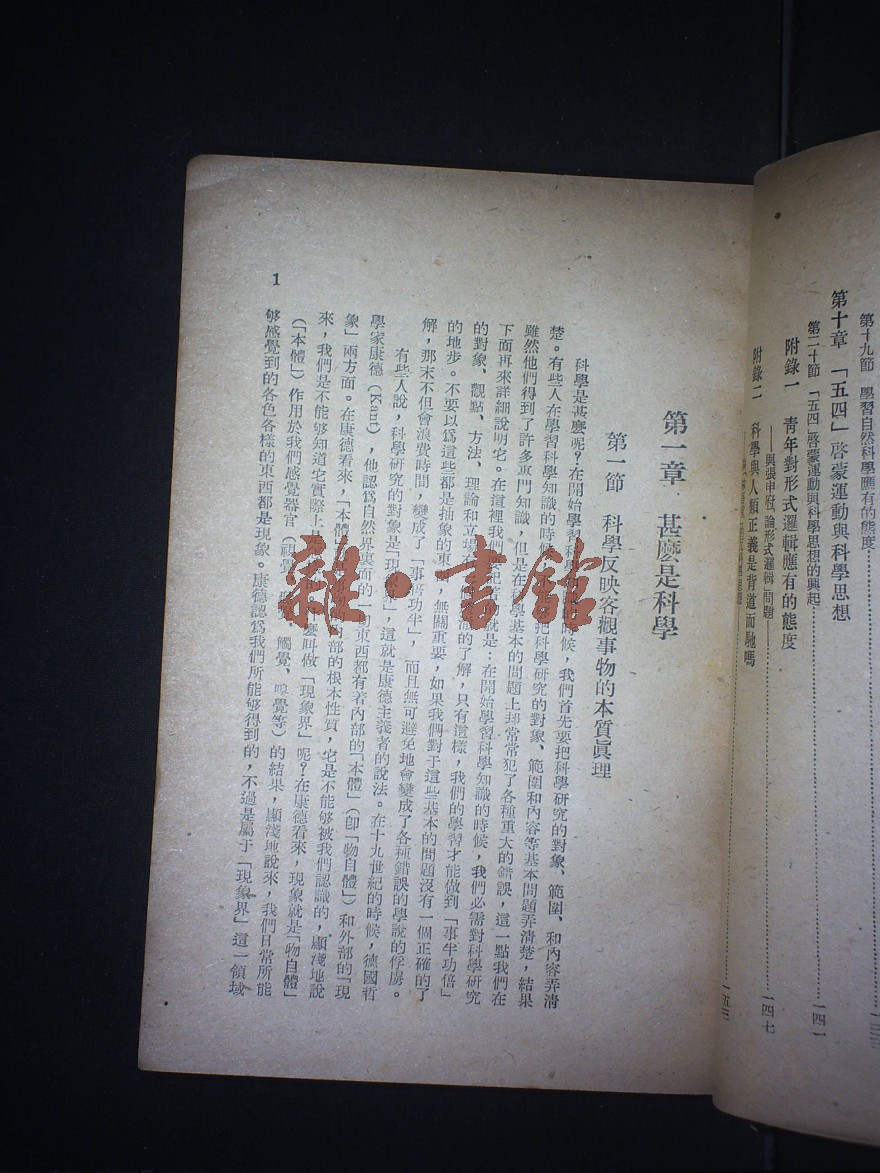 第十九節　學習自然科學應有的態度
第十章　「五四」啓蒙運動與科學思想
第二十節　「五四」啓蒙運動與科學思想的興起 一四一
附錄一　青年對形式邏輯應有的態度
——與張申府「論形式邏輯」問題—— 一四七
附錄二　科學與人類正義是背道而馳嗎
一五三
第一章　甚麼是科學
第一節　科學反映客觀事物的本質眞理
科學是甚麼呢？在開始學習科學 時候，我們首先要把科學研究的對象、範圍、和內容弄清
楚。有些人在學習科學知識的時候 把科學研究的對象、範圍和內容等基本問題弄清楚，結果
雖然他們得到了許多專門知識，但是在科學基本的問題上却常常犯了各種重大的錯誤，這一點我們在
下面再來詳細說明它。在這裡我們 記着 就是：在開始學習科學知識的時候，我們必需對科學研究
的對象、觀點、方法、理論和立塲 的了解，只有這樣，我們的學習才能做到「事半功倍」
的地步。不要以爲這些都是抽象的東 ，無關重要，如果我們對于這些基本的問題沒有一個正確的了
解，那末不但會浪費時間，變成了「事倍功半」，而且無可避免地會變成了各種錯誤的學說的俘虜。
有些人說，科學研究的對象是「現 」，這就是康德主義者的說法。在十九世紀的時候，德國哲
學家康德（Kant），他認爲自然界裏面的一切東西都有着內部的「本體」（卽「物自體」）和外部的「現
象」兩方面。在康德看來，「本體 的內部的根本性質，它是不能够被我們認識的，顯淺地說
來，我們是不能够知道它實際上是 麼叫做「現象界」呢？在康德看來，現象就是「物自體」
（「本體」）作用於我們感覺器官（視覺、 覺、觸覺、嗅覺等）的結果，顯淺地說來，我們日常所能
够感覺到的各色各樣的東西都是現象。康德認爲我們所能够得到的，不過是屬于「現象界」這一領域
1
雜·書館